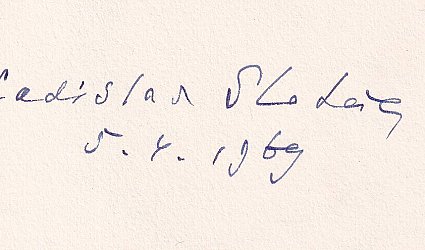 Ladislav
5.4.1969